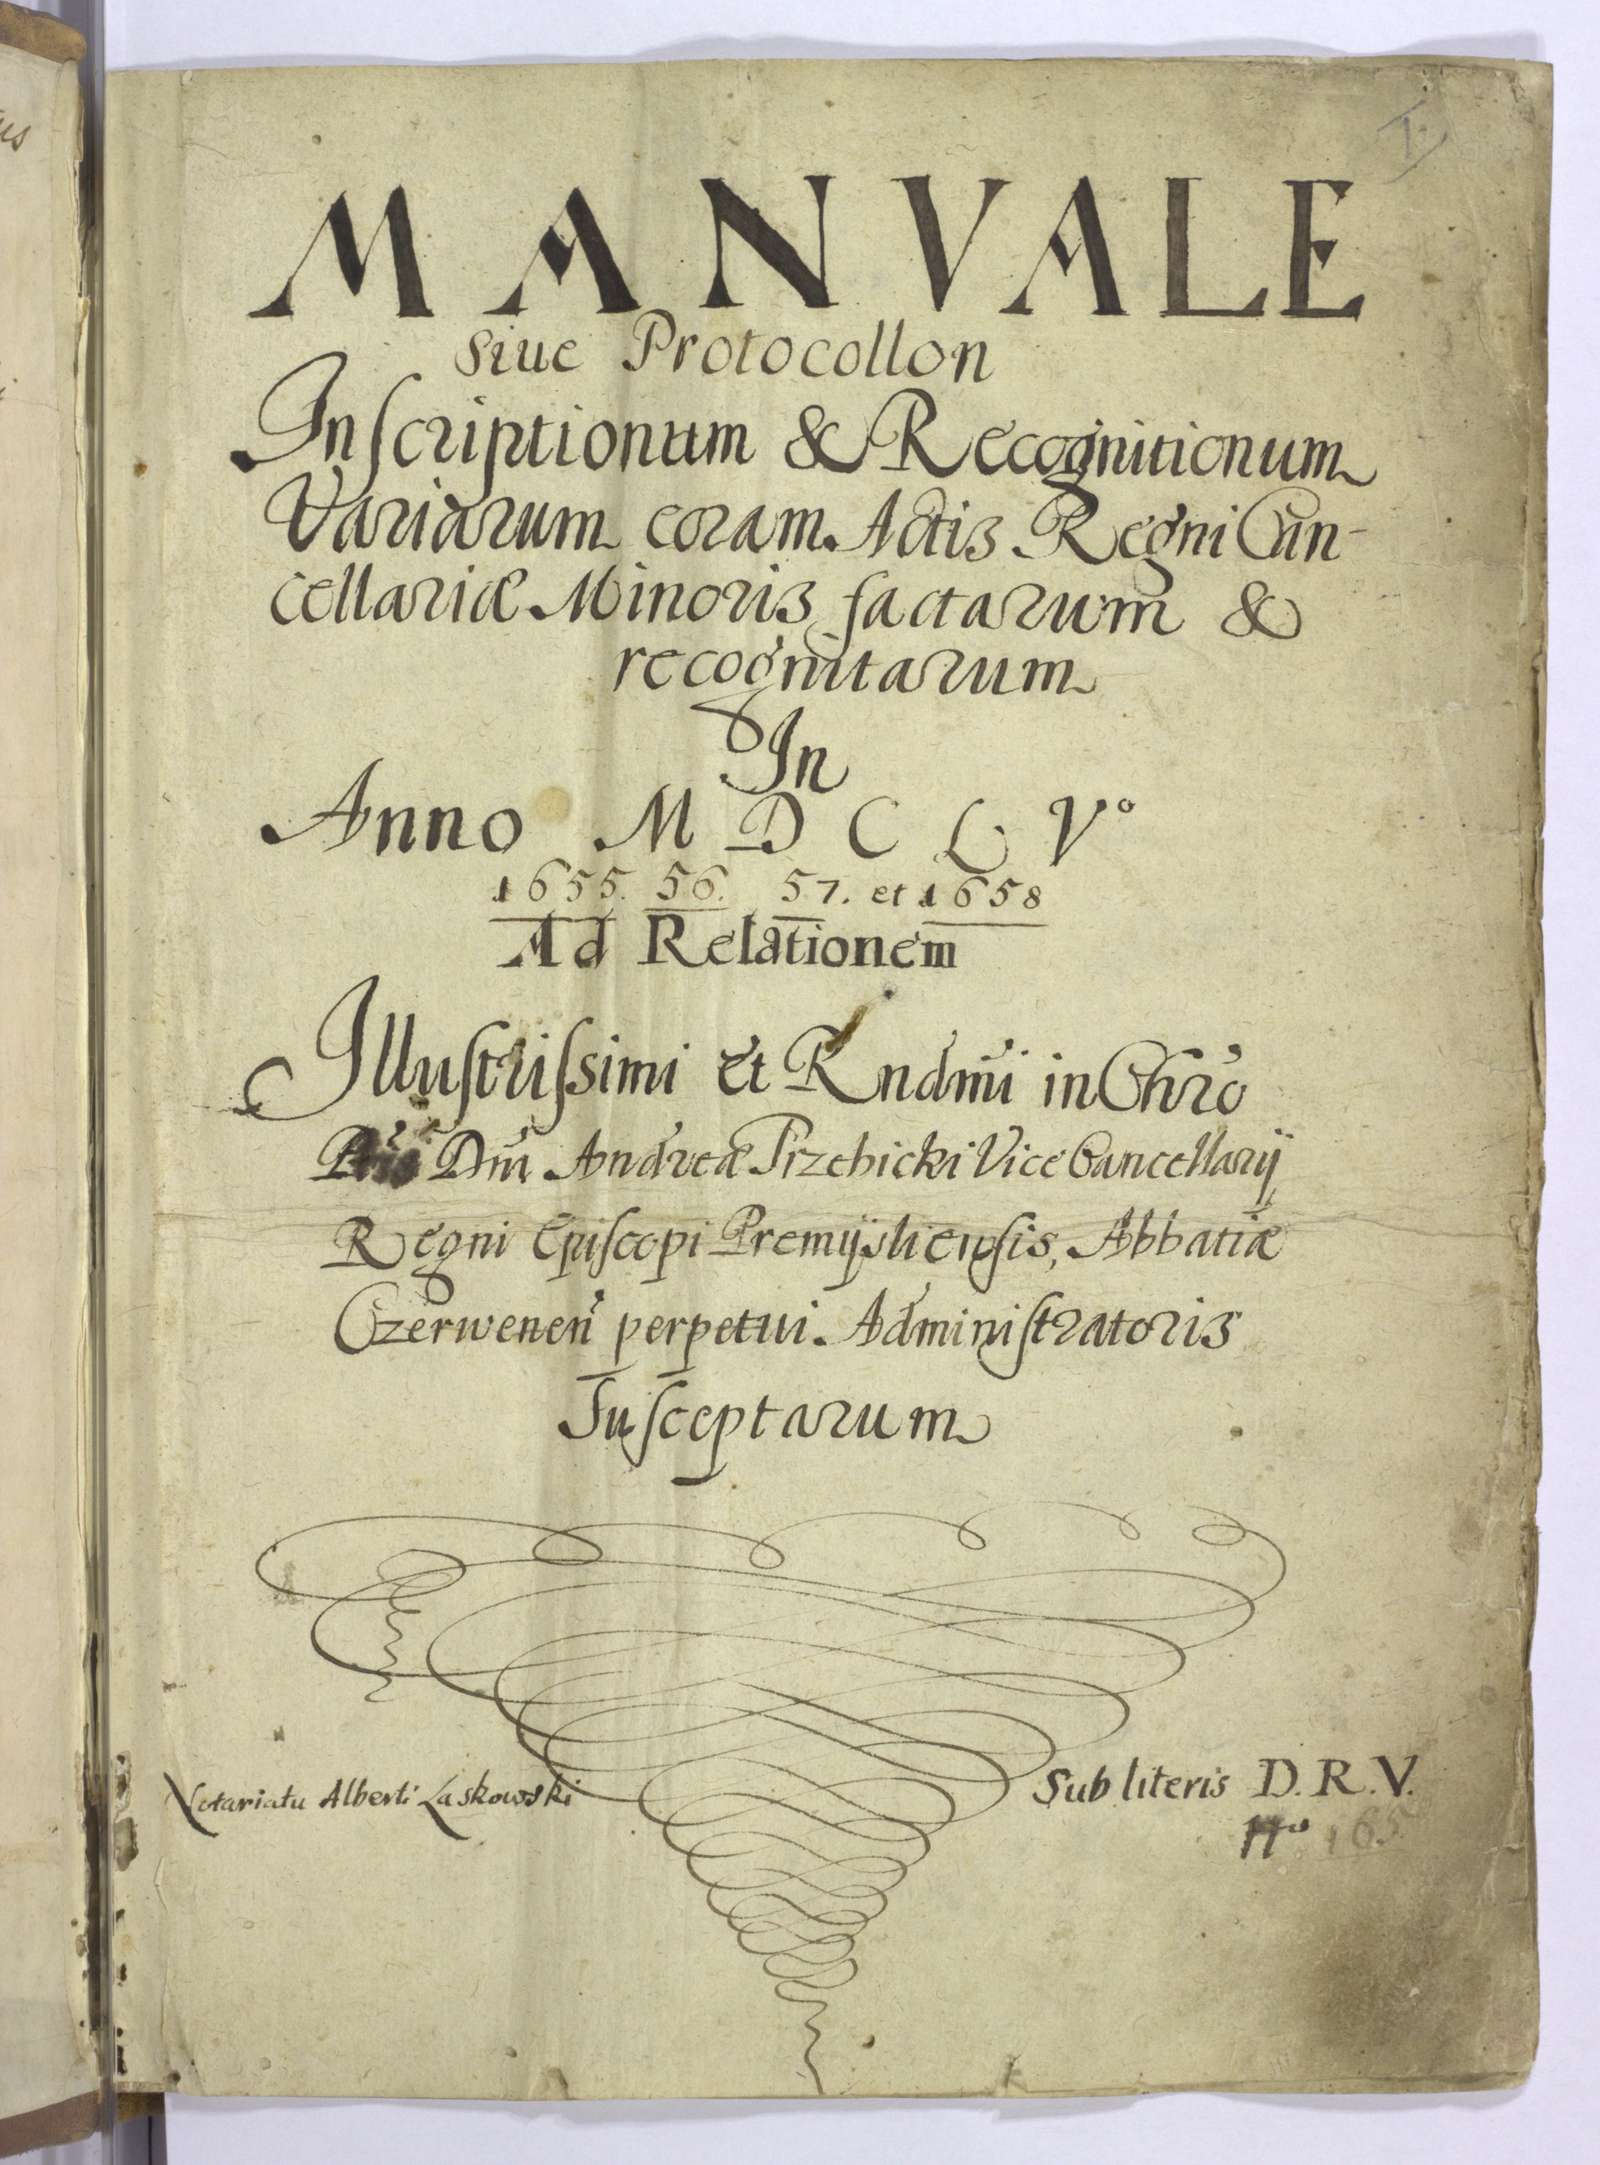 1
MANVALE
Siue Protocollon
Inscriptionum & Recognitionum
Variarum coram Actis Regni Can-
cellariæ Minoris factarum &
recognitarum
In
Anno M D C L Vº
1655. 56. 57. et 1658
Ad Relationem
Illustrissimi et Rndmi in Chro
Dni Andreæ Trzebicki Vice Cancellarij
Regni Episcopi Premijsliensis, Abbatiæ
Czerwenen perpetui Administratoris
Susceptarum
Notariatu Alberti Laskowski
Sub literis D. R. V.